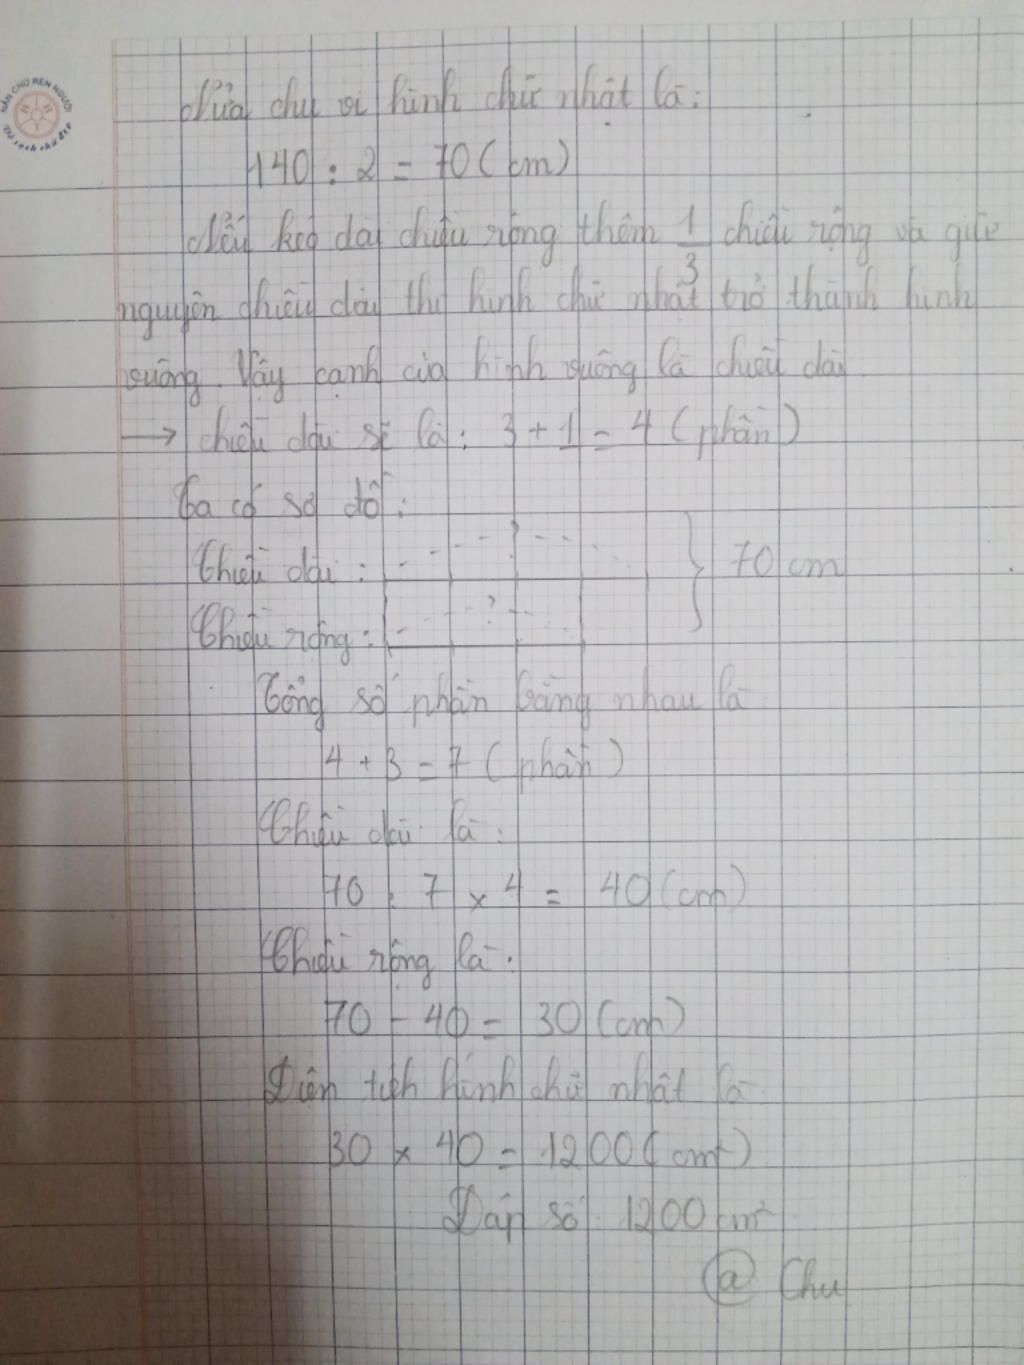 NẮN CHỮ RÈN NGƯỜI
Vở sạch chữ đẹp
Nửa chu vi hình chữ nhật là:
140 : 2 = 70 (cm)
Nếu kéo dài chiều rộng thêm 1/3 chiều rộng và giữ
nguyên chiều dài thì hình chữ nhật trở thành hình
vuông. Vậy cạnh của hình vuông là chiều dài
→ chiều dài sẽ là: 3 + 1 = 4 (phần)
Ta có sơ đồ:
Chiều dài: ? } 70 cm
Chiều rộng: ?
Tổng số phần bằng nhau là
4 + 3 = 7 (phần)
Chiều dài là:
70 : 7 × 4 = 40 (cm)
Chiều rộng là:
70 - 40 = 30 (cm)
Diện tích hình chữ nhật là
30 × 40 = 1200 (cm²)
Đáp số: 1200 cm²
@ Chu